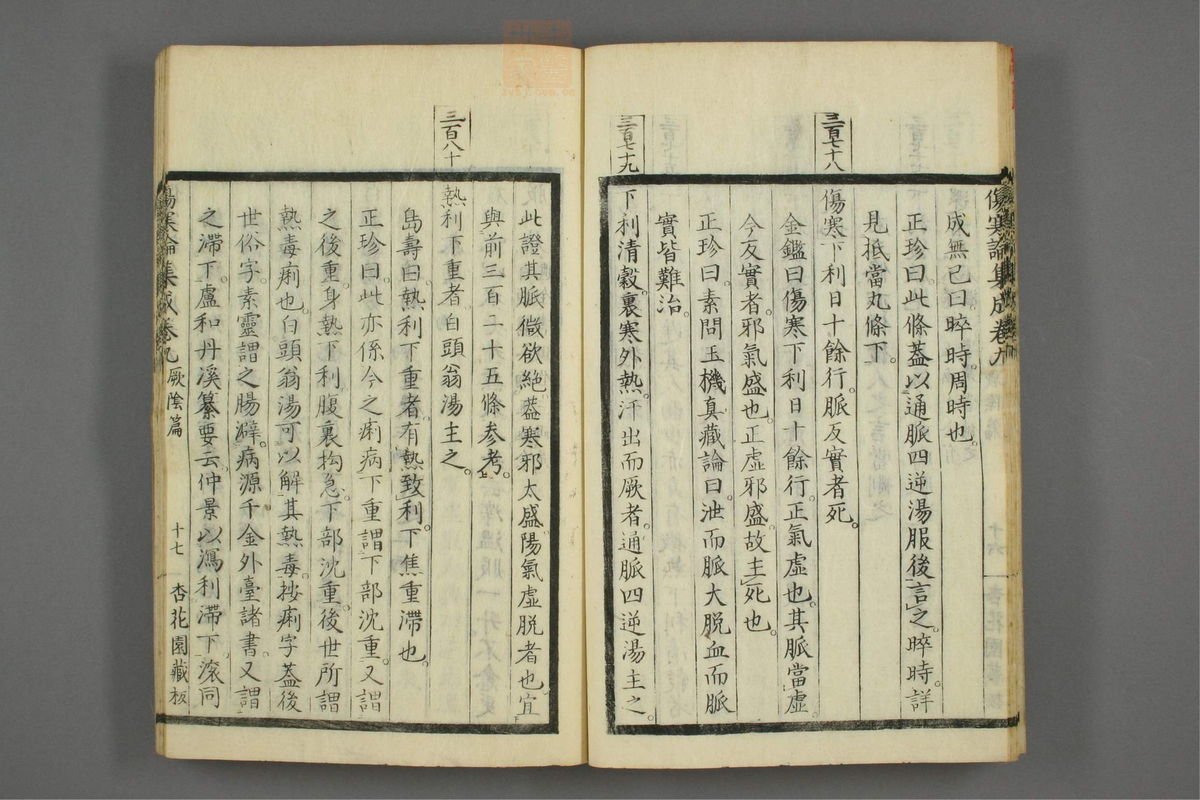 傷寒論集成卷九
成無已曰。晬時。周時也。
正珍曰。此條蓋以通脈四逆湯服後言之。晬時。詳
見抵當丸條下。
三百七十八
傷寒下利日十餘行。脈反實者死。
金鑑曰。傷寒下利日十餘行。正氣虛也。其脈當虛。
今反實者。邪氣盛也。正虛邪盛。故主死也。
正珍曰。素問玉機真藏論曰。泄而脈大。脱血而脈
實。皆難治。
三百七十九
下利清穀。裏寒外熱。汗出而厥者。通脈四逆湯主之。
此證其脈微欲絶。蓋寒邪太盛。陽氣虛脱者也。宜
與前三百二十五條參考。
三百八十
熱利下重者。白頭翁湯主之。
島壽曰。熱利下重者。有熱致利。下焦重滯也。
正珍曰。此亦係今之痢病。下重。謂下部沈重。又謂
之後重。身熱下利。腹裏拘急。下部沈重。後世所謂
熱毒痢也。白頭翁湯可以解其熱毒。按痢字蓋後
世俗字。素靈謂之腸澼。病源千金外臺諸書。又謂
之滯下。盧和丹溪纂要云。仲景以瀉利滯下。滚同
傷寒論集成卷九 厥陰篇 十七 杏花園藏板